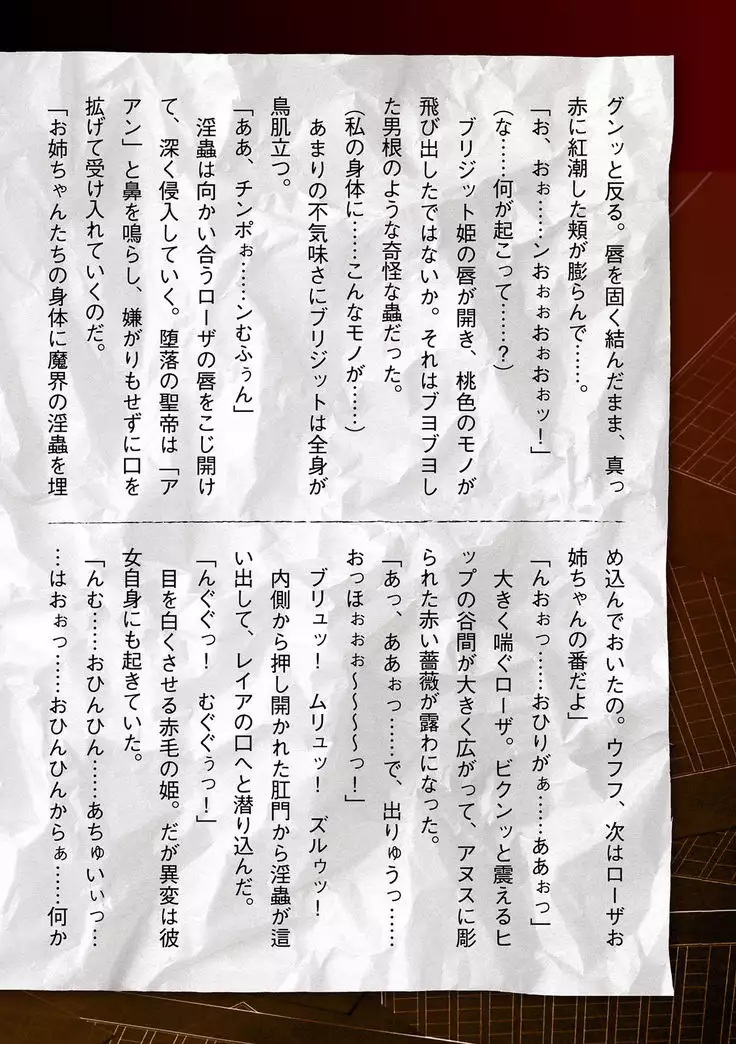 グンッと反る。唇を固く結んだまま、真っ
赤に紅潮した頬が膨らんで……。
「お、おぉ……ンおぉぉおぉおぉッ！」
(な……何が起こって……？)
ブリジット姫の唇が開き、桃色のモノが
飛び出したではないか。それはブヨブヨし
た男根のような奇怪な蟲だった。
(私の身体に……こんなモノが……)
あまりの不気味さにブリジットは全身が
鳥肌立つ。
「ああ、チンポぉ……ンむふぅん」
淫蟲は向かい合うローザの唇をこじ開け
て、深く侵入していく。堕落の聖帝は「ア
アン」と鼻を鳴らし、嫌がりもせずに口を
拡げて受け入れていくのだ。
「お姉ちゃんたちの身体に魔界の淫蟲を埋
め込んでおいたの。ウフフ、次はローザお
姉ちゃんの番だよ」
「んおぉっ……おひりがぁ……ああぉっ」
大きく喘ぐローザ。ビクンッと震えるヒ
ップの谷間が大きく広がって、アヌスに彫
られた赤い薔薇が露わになった。
「あっ、ああぉっ……で、出りゅうっ……
おっほぉぉぉ～～～～っ！」
ブリュッ！　ムリュッ！　ズルゥッ！
内側から押し開かれた肛門から淫蟲が這
い出して、レイアの口へと潜り込んだ。
「んぐぐっ！　むぐぐぅっ！」
目を白くさせる赤毛の姫。だが異変は彼
女自身にも起きていた。
「んむ……おひんひん……あちゅいぃっ…
…はおぉっ……おひんひんからぁ……何か